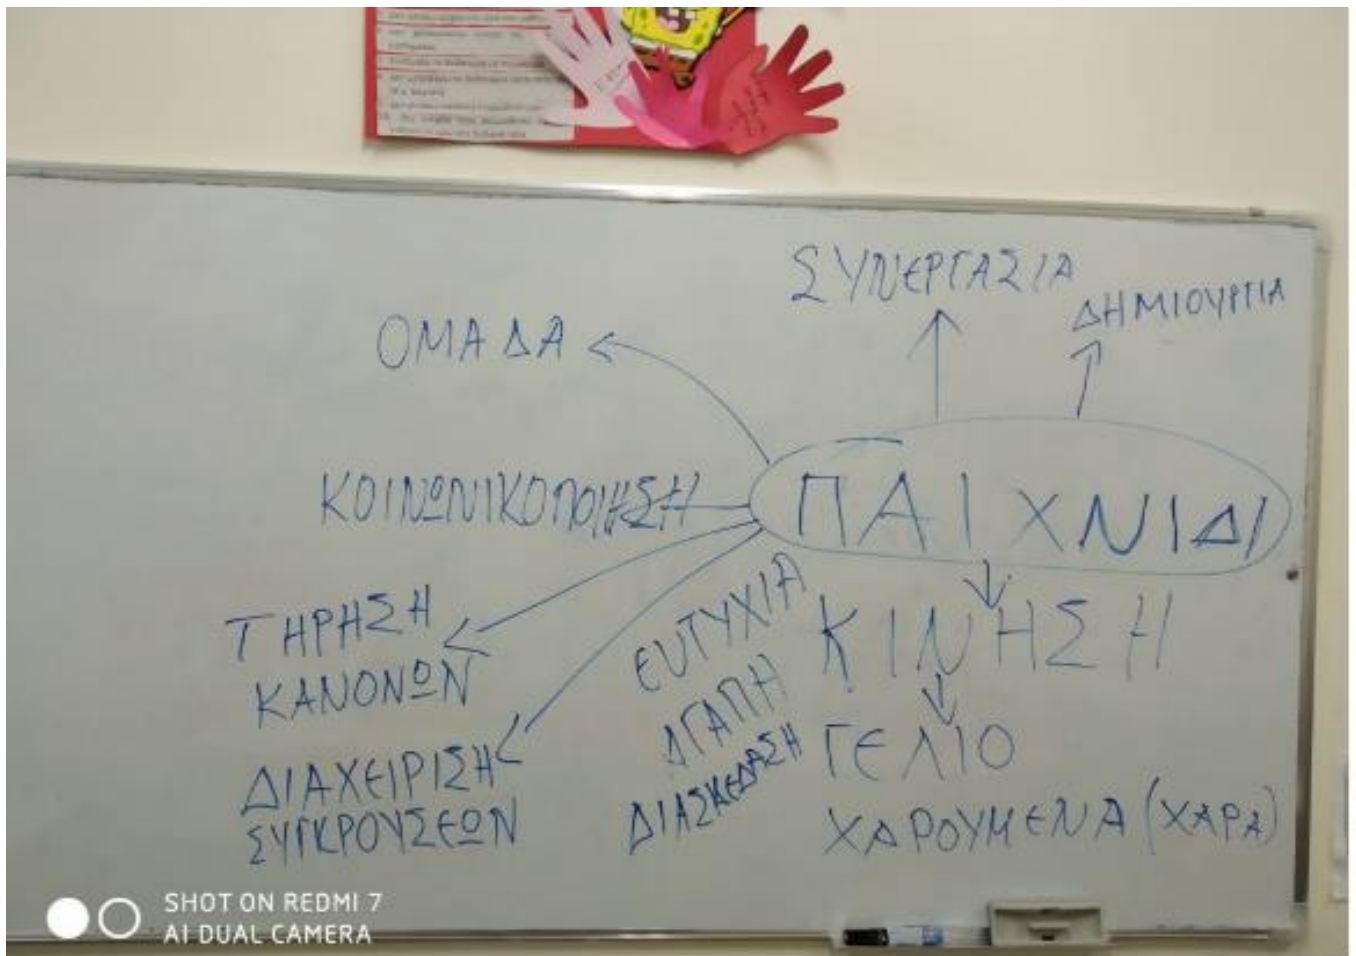 ΣΥΝΕΡΓΑΣΙΑ
ΔΗΜΙΟΥΡΓΙΑ
ΟΜΑΔΑ
ΚΟΙΝΩΝΙΚΟΠΟΙΗΣΗ
ΠΑΙΧΝΙΔΙ
ΤΗΡΗΣΗ
ΚΑΝΟΝΩΝ
ΔΙΑΧΕΙΡΙΣΗ
ΣΥΓΚΡΟΥΣΕΩΝ
ΕΥΤΥΧΙΑ
ΑΓΑΠΗ
ΔΙΑΣΚΕΔΑΣΗ
ΚΙΝΗΣΗ
ΓΕΛΙΟ
ΧΑΡΟΥΜΕΝΑ (ΧΑΡΑ)
SHOT ON REDMI 7
AI DUAL CAMERA